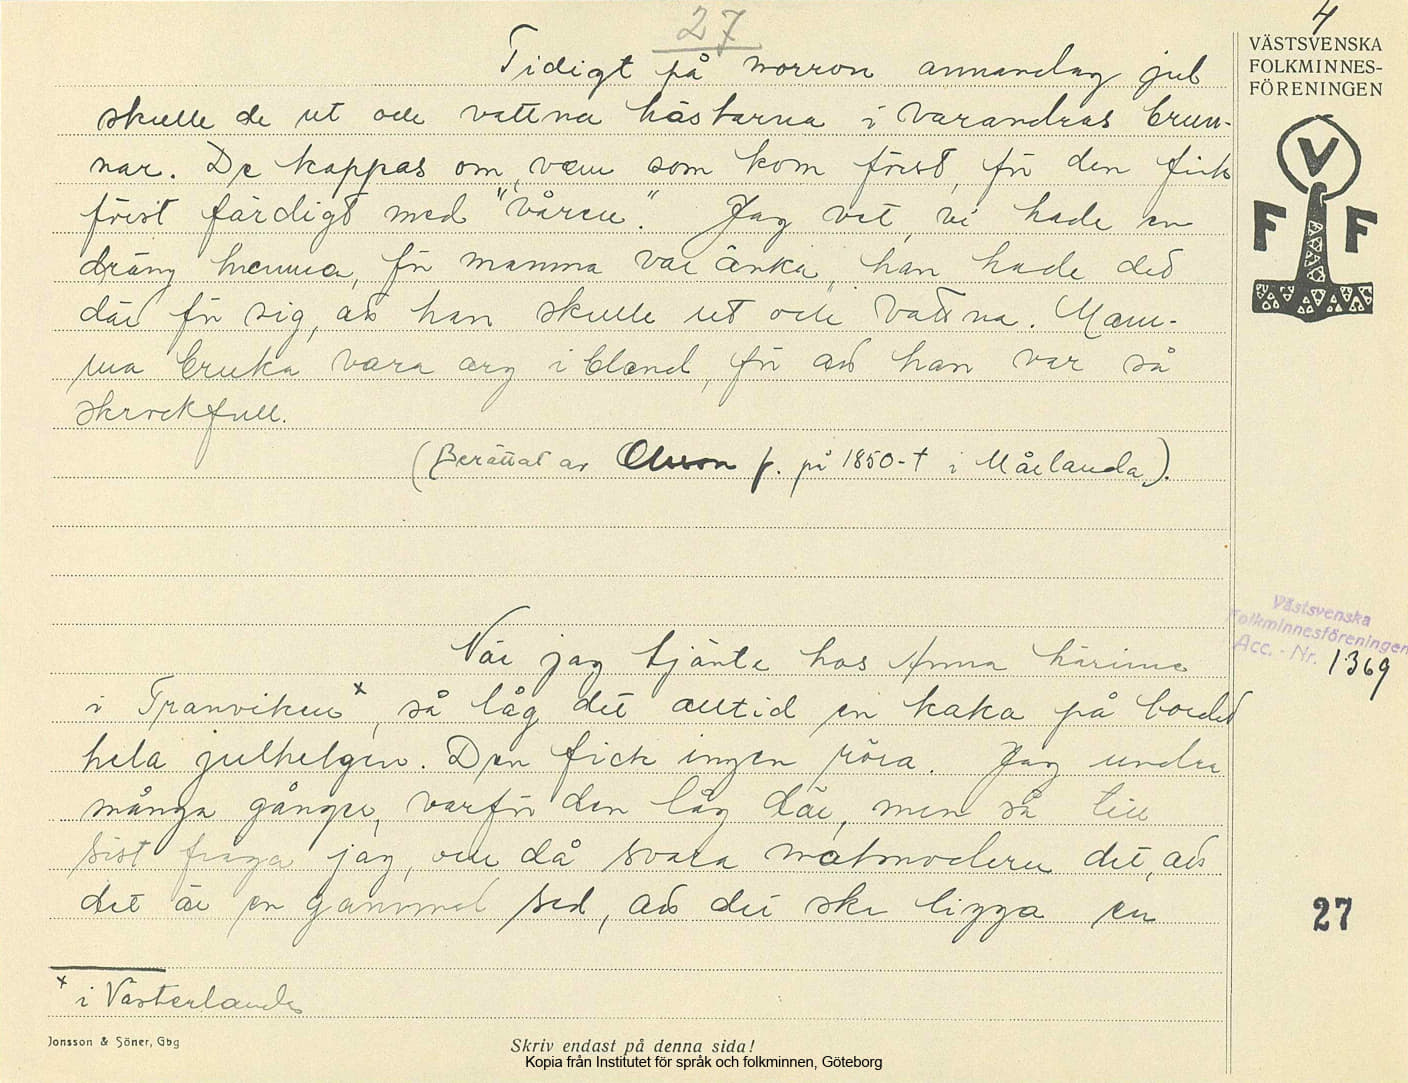 27
4
Tidigt på morron annandag jul
skulle de ut och vattna hästarna i varandras brun-
nar. De kappas om, vem som kom först, för den fick
först färdigt med "våren". Jag vet, vi hade en
dräng hemma, för mamma var änka, han hade det
där för sig, att han skulle ut och vattna. Mam-
ma bruka vara arg ibland, för att han var så
skrockfull.
(Berättat av Olsson f. på 1850-t i Mårlanda).
När jag tjänte hos Anna härinne
i Tranviken x, så låg det alltid en kaka på bordet
hela julhelgen. Den fick ingen röra. Jag undra
många gånger, varför den låg där, men så till
sist fråga jag, och då svara matmodern det, att
det är en gammal sed, att det ska ligga en
x i Västerlanda
Jonsson & Söner, Gbg
Skriv endast på denna sida!
Kopia från Institutet för språk och folkminnen, Göteborg
VÄSTSVENSKA
FOLKMINNES-
FÖRENINGEN
V
F F
Västsvenska
Folkminnesföreningen
Acc. - Nr. 1369
27